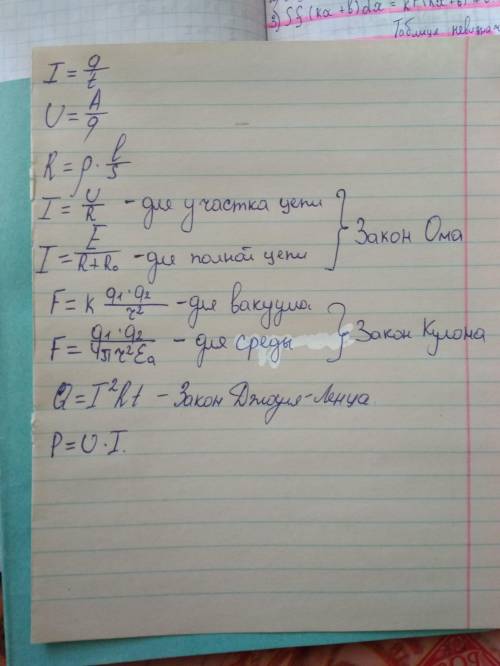 3) ∫f(kx+b)dx = kF(kx+b)
Таблица невизнач
I = q/t
U = A/q
R = ρ · l/s
I = U/R - для участка цепи
I = E/(R+R₀) - для полной цепи
Закон Ома
F = k q₁·q₂/r² - для вакуума
F = q₁·q₂/(4πr²εₐ) - для среды
Закон Кулона
Q = I²Rt - Закон Джоуля-Ленца.
P = U·I.